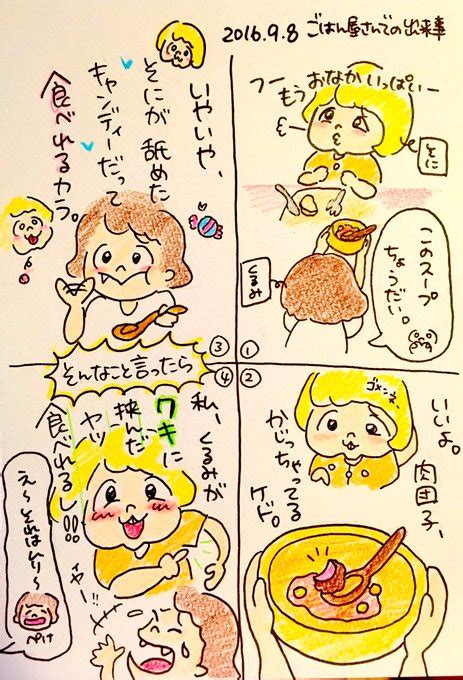 2016.9.8 ごはん屋さんでの出来事
フー
もうおなかいっぱいー
そに
このスープ
ちょうだい。
くるみ
①
②
ゴメンネ
いいよ。
肉団子、
かじっちゃってる
ケド。
いやいや、
そにが舐めた
キャンディーだって
食べれるカラ。
③
そんなこと言ったら
④
私ー
くるみが
ワキに
挟んだ
ヤツ
食べれるし!!
え〜それはムリ〜